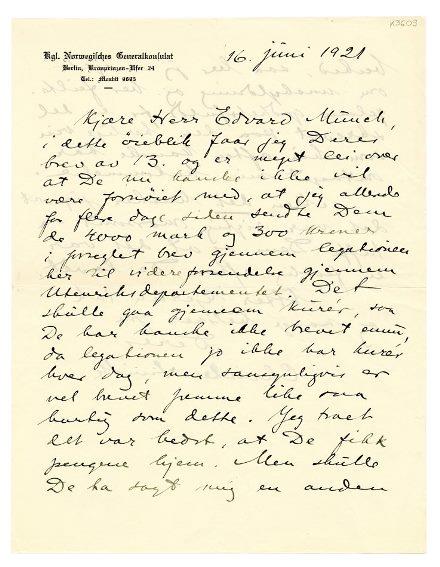 K3603
Kgl. Norwegisches Generalkonsulat
Berlin, Kronprinzen-Ufer 24
Tel.: Moabit 9695
16. juni 1921
Kjære Herr Edvard Munch,
i dette öieblik faar jeg Deres
brev av 13. og er meget lei over
at De nu kanske ikke vil
være fornöiet med, at jeg allerede
for flere dage siden sendte Dem
de 4000 mark og 300 kroner
i forseglet brev gjennem legationen
her til videreforsendelse gjennem
Utenriksdepartementet. Det
skulle gaa gjennem kurér, saa
De har kanske ikke brevet ennu,
da legationen jo ikke har kurér
hver dag, men sansynligvis er
vel brevet fremme like saa
hurtig som dette. Jeg troet
det var bedst, at De fikk
pengene hjem. Men skulle
De ha sagt mig en anden